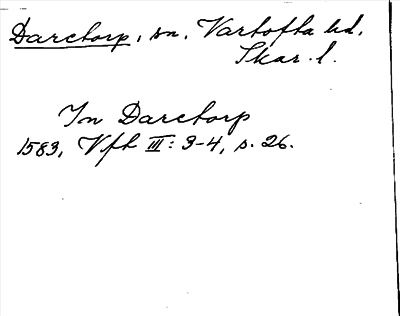 Daretorp, sn, Vartofta hd,
Skar. l.
In Daretorp
1583, Vfh III: 3-4, s. 26.